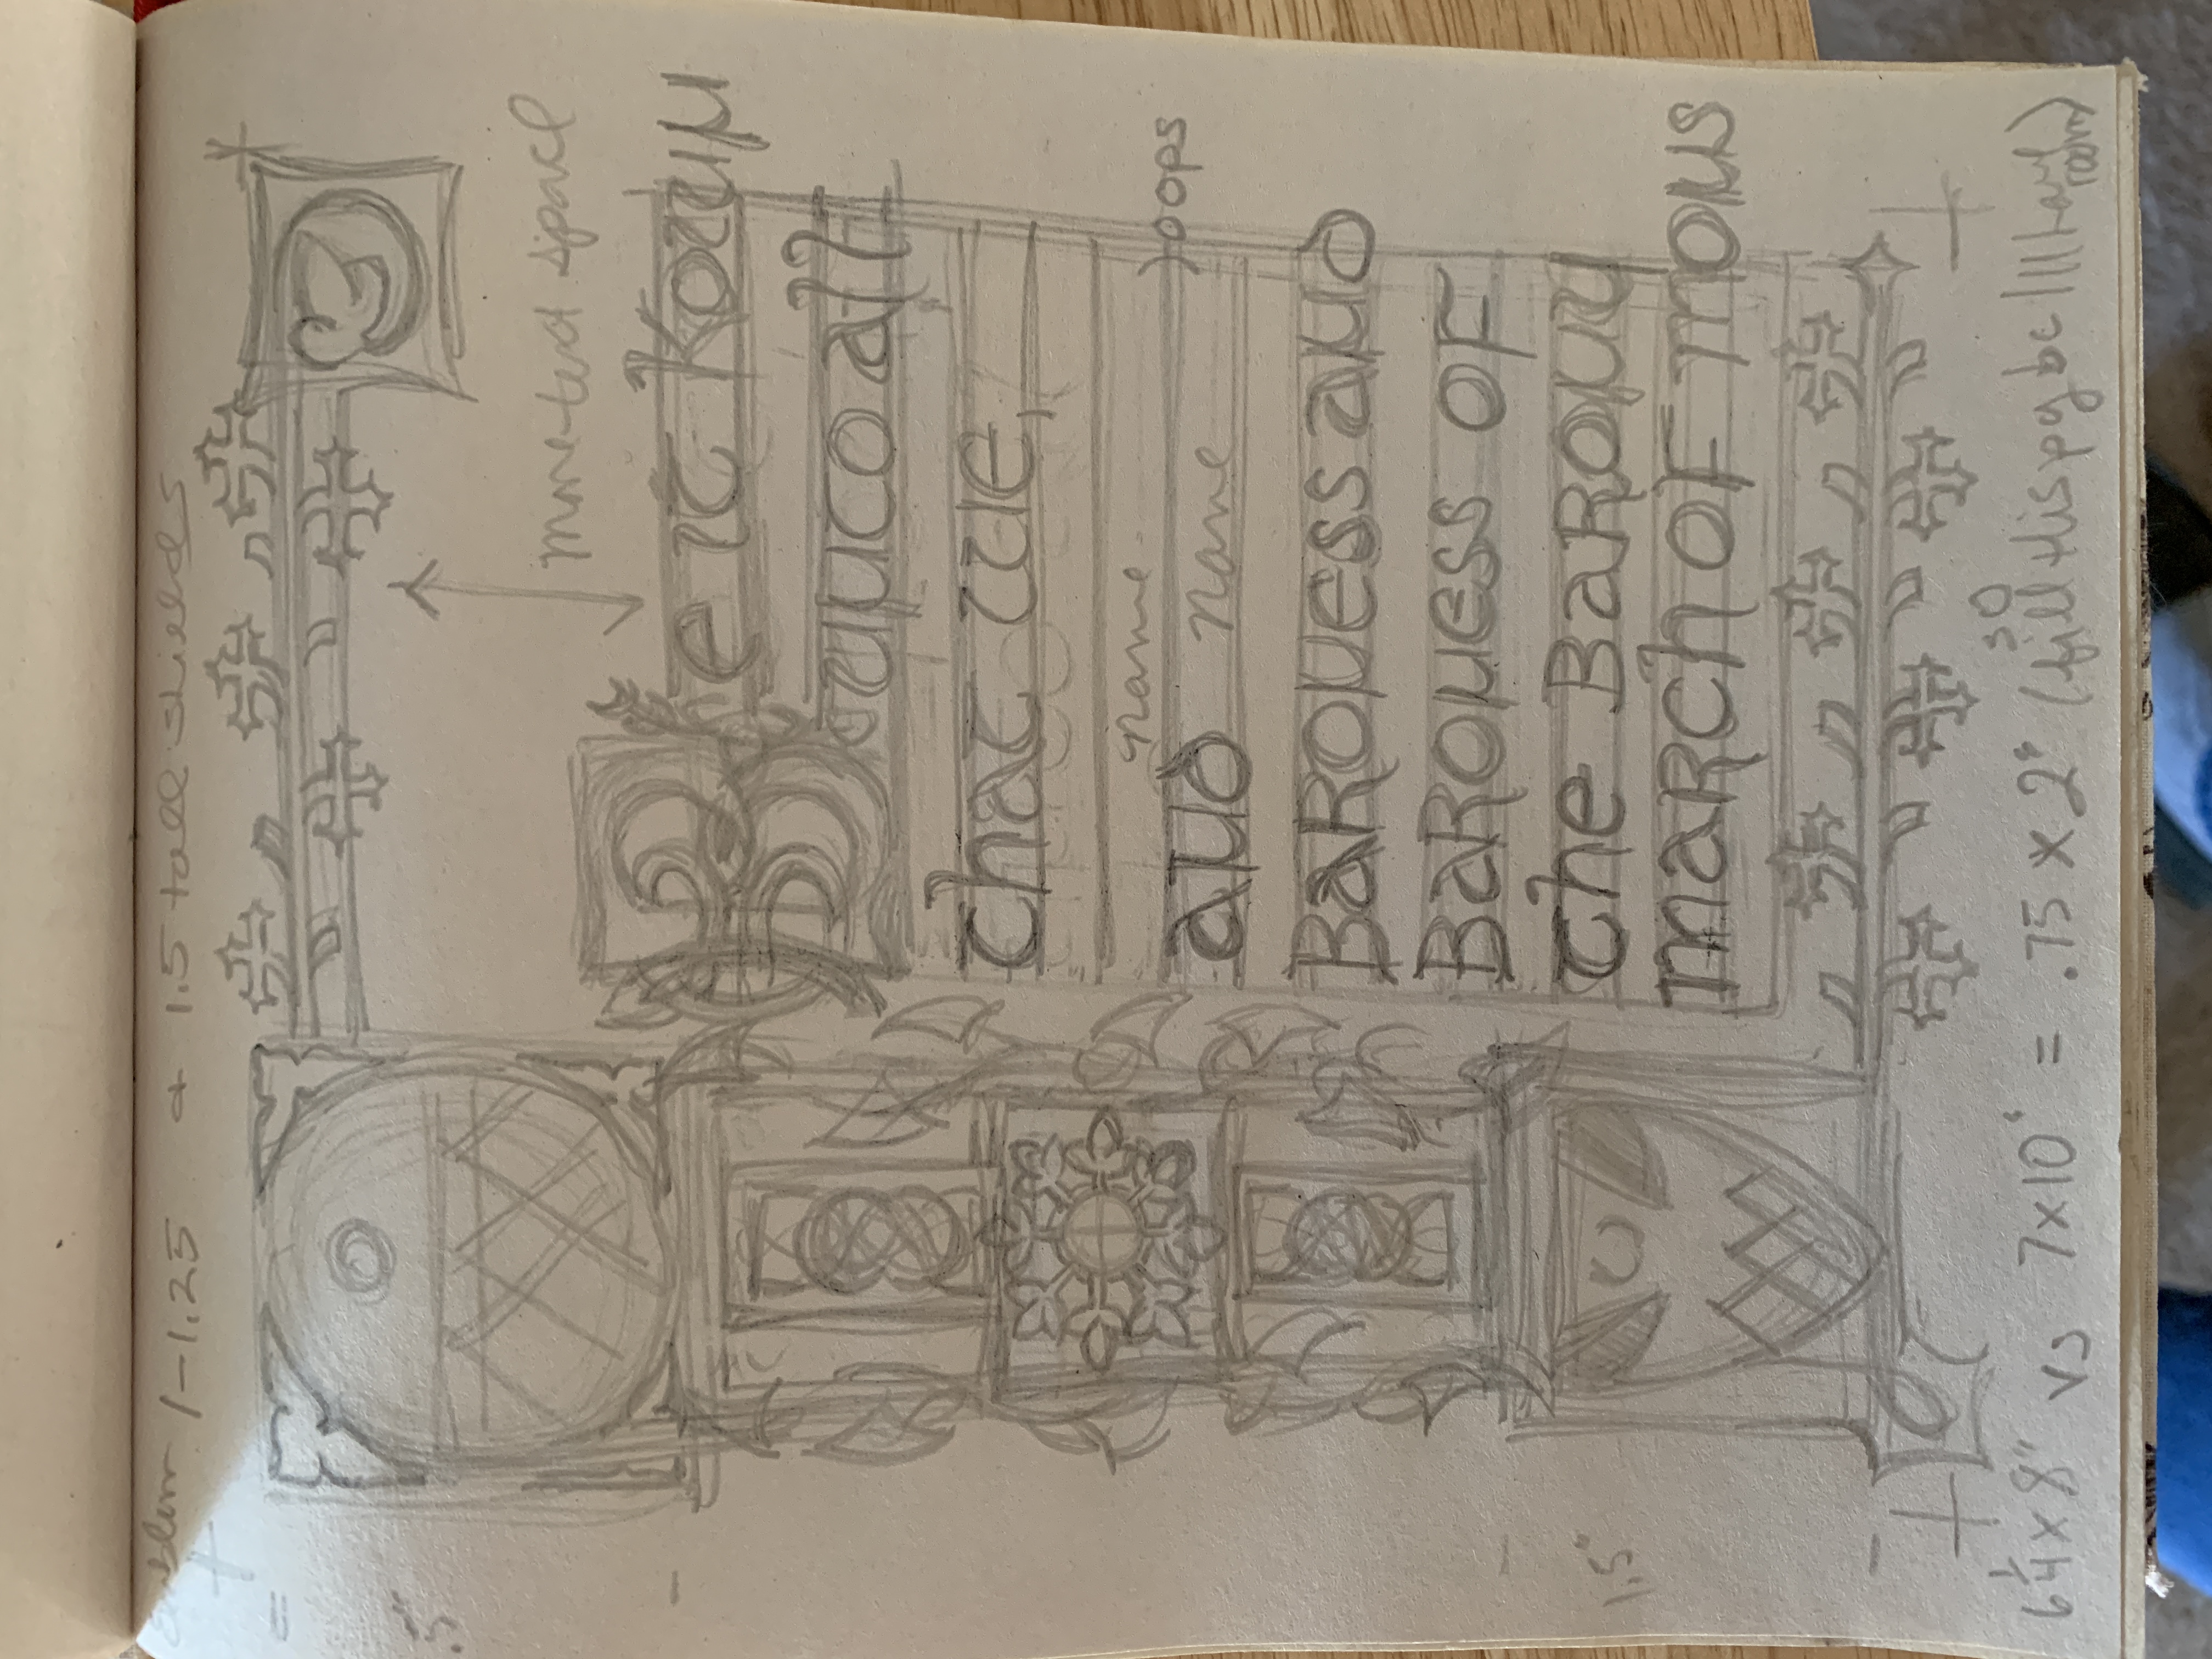 Emblem 1-1.25 & 1.5 tall shields
.5"
more text space
Be it Known
unto all
that we,
name
oops
and name
Baroness and
Baroness of
the Barony
march of mons
1.5"
6 1/4 x 8" vs 7x10" = .75 x 2" (so fill this pg bc I'll have room)